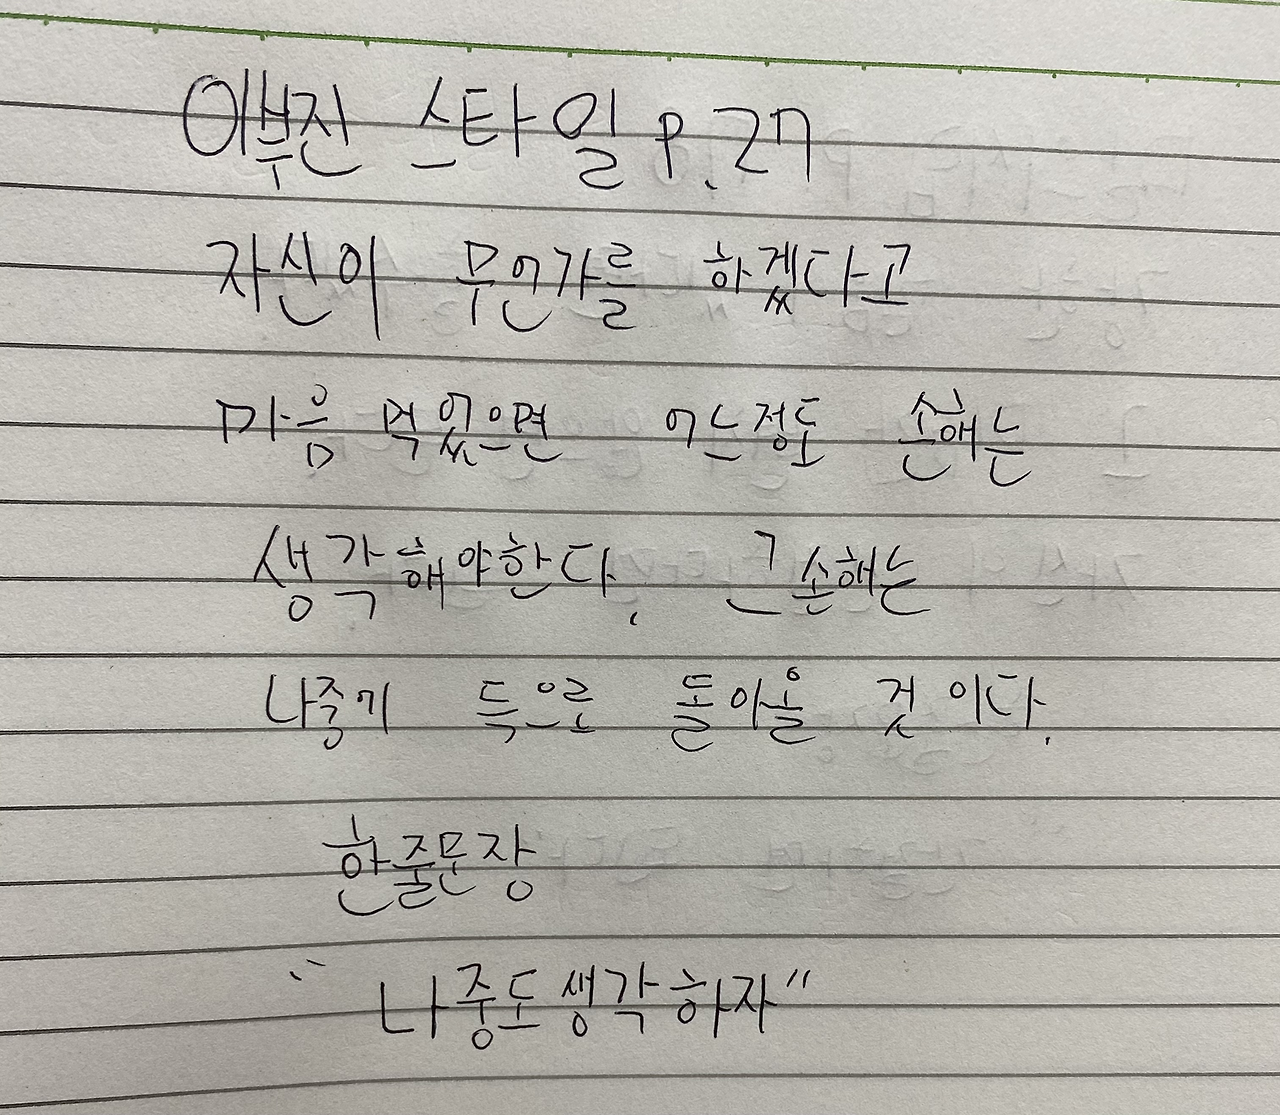 이부진 스타일 P.27
자신이 무언가를 하겠다고
마음 먹었으면 어느정도 손해는
생각해야한다. 그 손해는
나중에 득으로 돌아올 것 이다.
한줄문장
"나중도 생각하자"